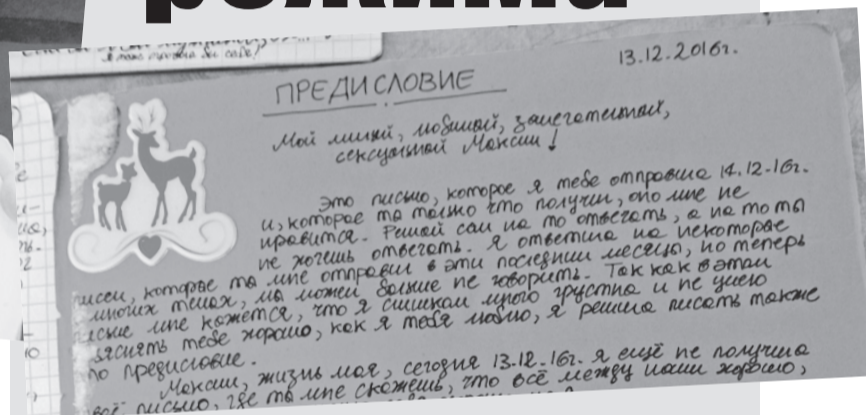 режима
13.12.2016г.
ПРЕДИСЛОВИЕ
Мой милый, любимый, замечательный,
сексуальный Максим!
Это письмо, которое я тебе отправила 14.12-16г.
и, которое ты только что получил, оно мне не
нравится. Решай сам на то отвечать, а на то ты
не хочешь отвечать. Я ответила на некоторые
писем, которые ты мне отправил в эти последнии месяцы, но теперь
многих темах, мы можем больше не говорить. Так как в этом
письме мне кажется, что я слишком много грустна и не умею
яснять тебе хорошо, как я тебя люблю, я решила писать также
по предисловие.
Максим, жизнь моя, сегодня 13.12-16г. я ещё не получила
всё письмо, где ты мне скажешь, что всё между нами хорошо,